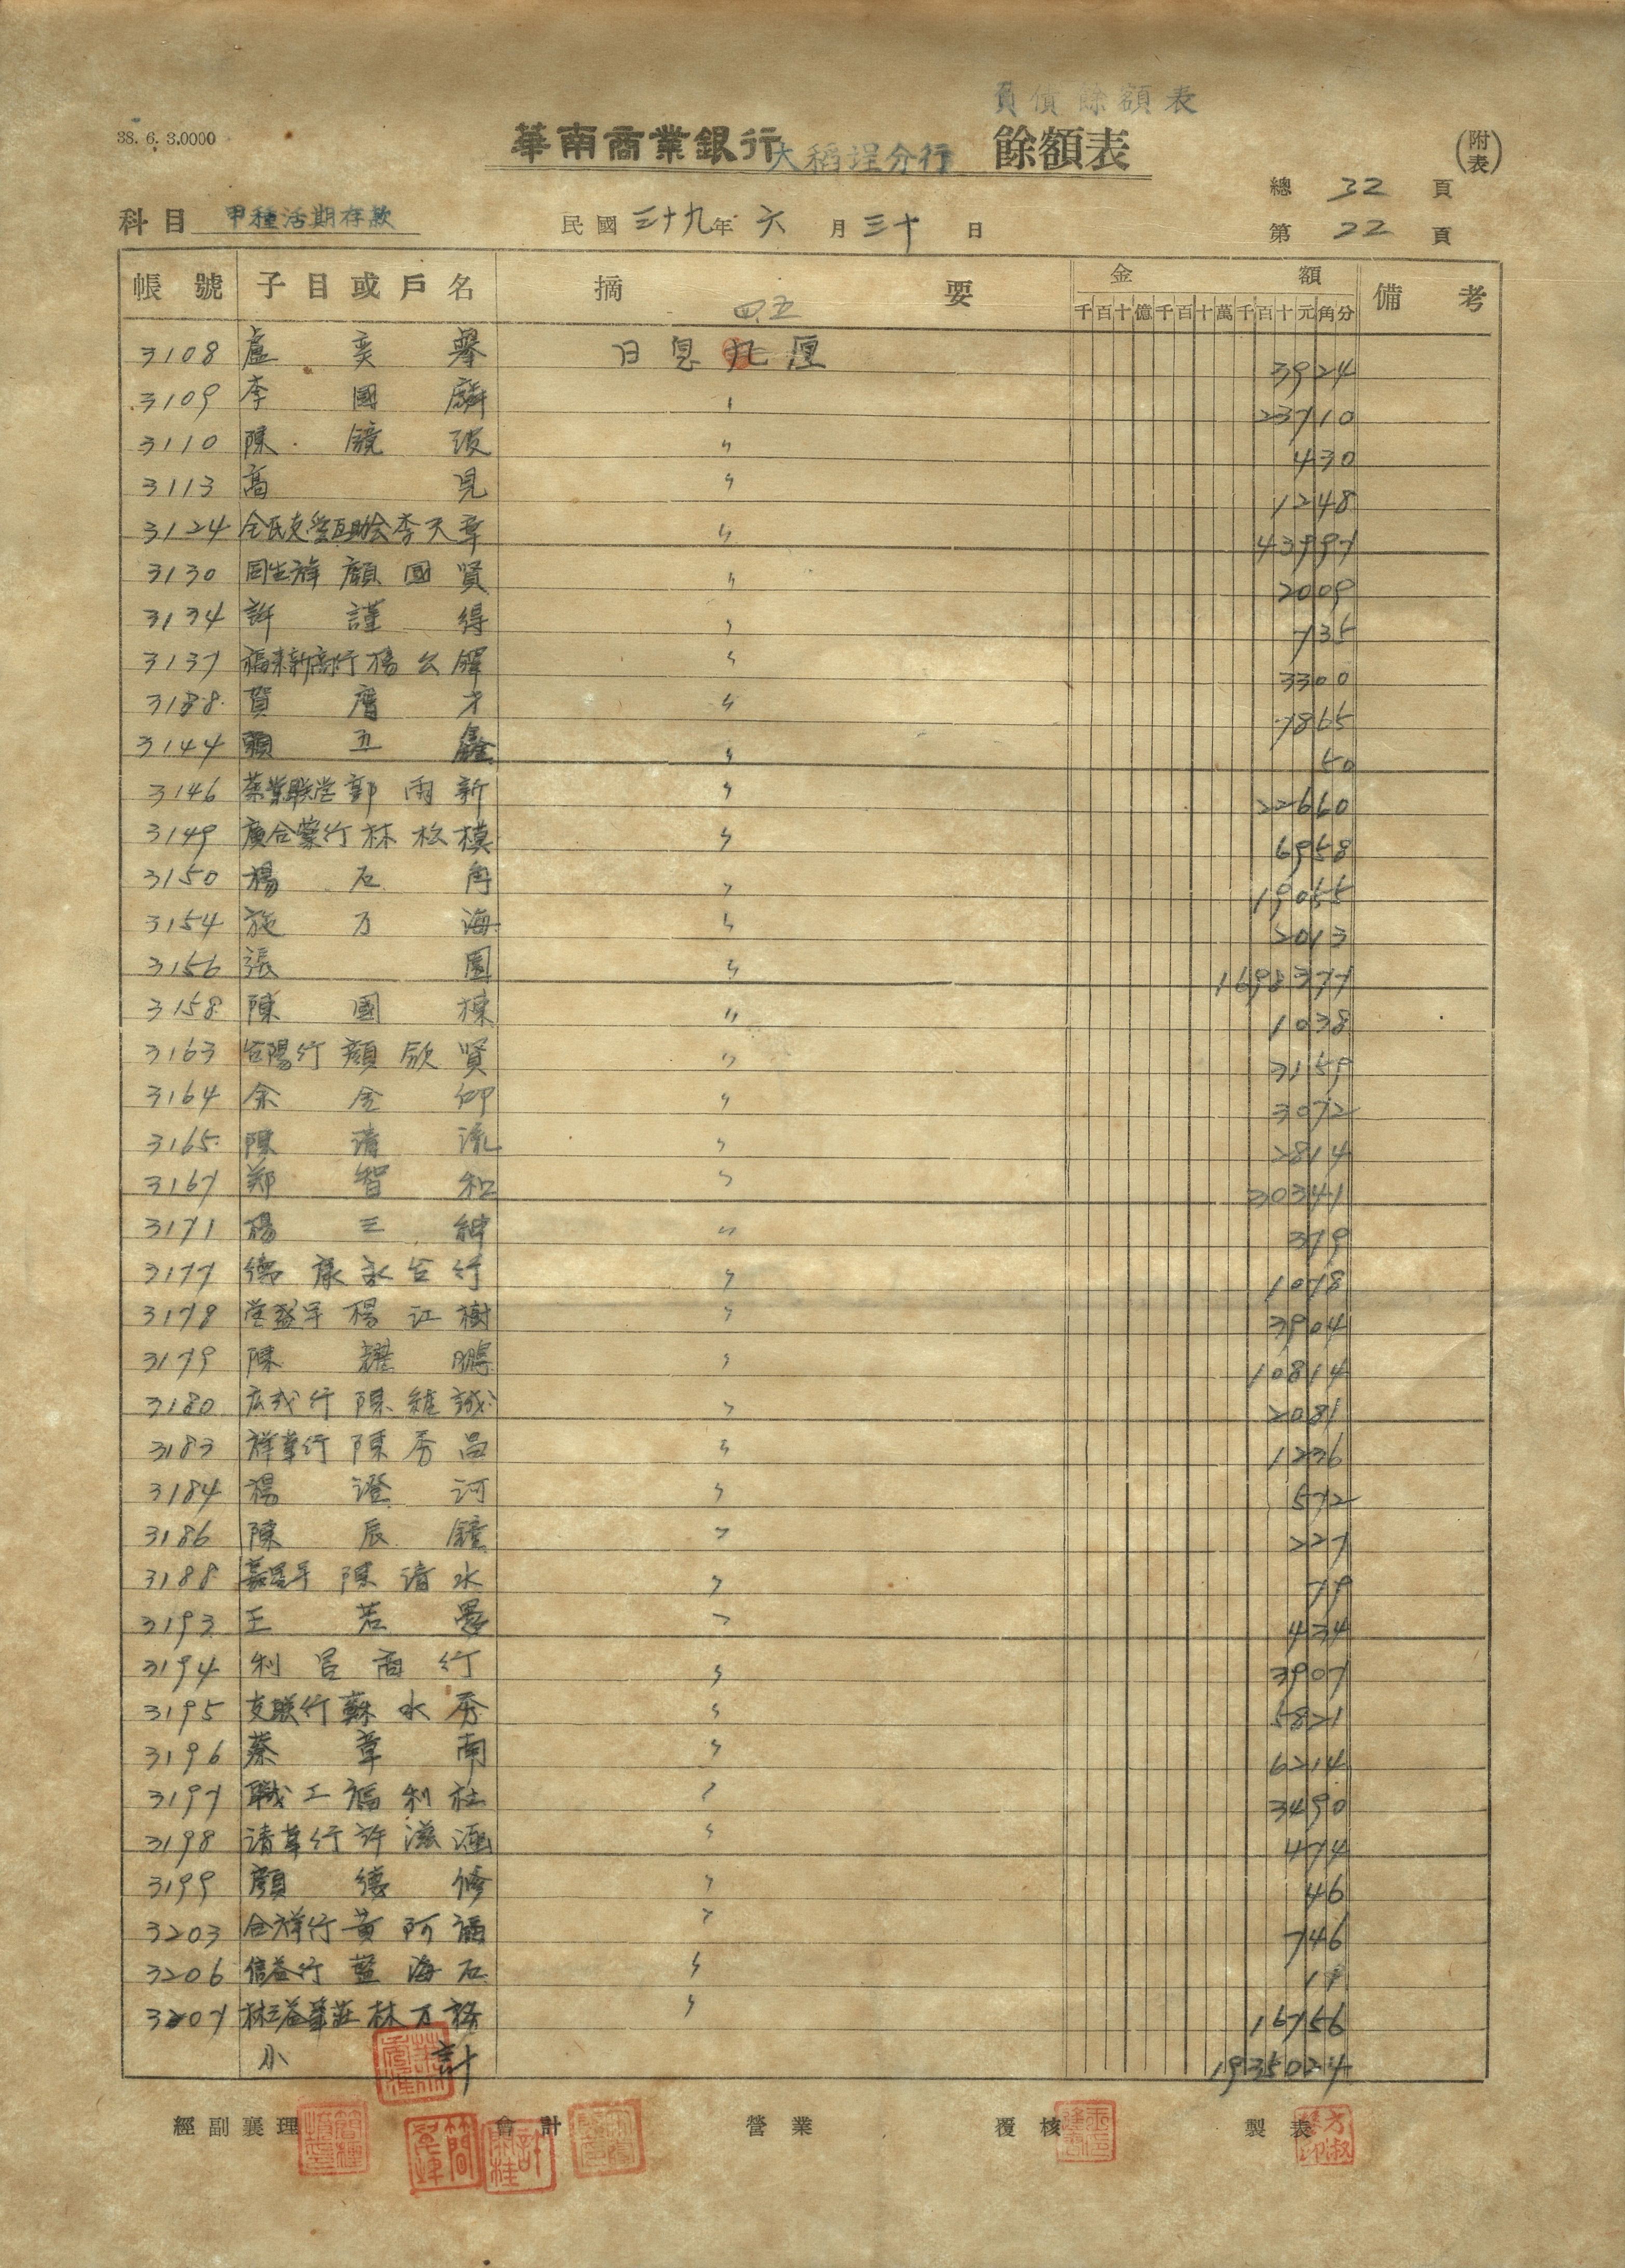 負債餘額表
38. 6. 3.0000
華南商業銀行大稻埕分行 餘額表 (附表)
總 32 頁
科目 甲種活期存款 民國三十九年六月三十日 第 22 頁
帳號 子目或戶名 摘要 金額 備考
四.五 千百十億千百十萬千百十元角分
3108 盧奕 日息九厘 3924
3109 李國麟 〃 23710
3110 陳鏡波 〃 430
3113 高見 〃 1248
3124 互助会李天章 〃 43997
3130 顏國賢 〃 2009
3134 許謹得 〃 735
3137 福来新商行楊公鐸 〃 3300
3138 賀膺才 〃 7865
3144 賴五鑫 〃 50
3146 茶業联営郭雨新 〃 22660
3149 廣合業行林松模 〃 6958
3150 楊石角 〃 19055
3154 施万海 〃 2013
3156 張園 〃 1698377
3158 陳國棟 〃 1038
3163 台陽行顏欽賢 〃 3159
3164 余金仰 〃 3072
3165 陳清流 〃 2814
3167 鄭智和 〃 30341
3171 楊三紳 〃 379
3177 德康永行 〃 1078
3178 楊江樹 〃 3904
3179 陳耀鵬 〃 10814
3180 広成行陳維誠 〃 2081
3183 祥華行陳秀昌 〃 1236
3184 楊澄河 〃 572
3186 陳辰鏡 〃 227
3188 陳清水 〃 79
3193 王若愚 〃 434
3194 利昌商行 〃 3907
3195 支联行蘇水秀 〃 5821
3196 蔡章南 〃 6214
3197 職工福利社 〃 3490
3198 清華行許滋涵 〃 474
3199 顏德修 〃 46
3203 合祥行黃阿福 〃 746
3206 信益行藍海石 〃 19
3207 林三益華莊林万 〃 15756
小計 1935024
經副襄理 會計 營業 覆核 製表